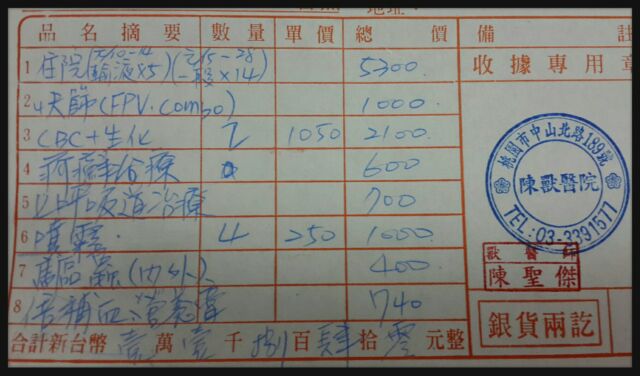 品名摘要 數量 單價 總價 備註
1 住院(2/10-14 輸液×5)(2/15-28 一般×14) 5300.
收據專用章
2 (FPV. Combo) 1000.
3 CBC+生化 2 1050 2100.
桃園市中山北路189號
陳獸醫院
TEL:03-3391577
4 治療 600
5 上呼吸道治療 700
6 噴霧. 4 250 1000.
獸醫師
陳聖傑
7 驅蟲(內外). 400
8 補血.營養膏 740
銀貨兩訖
合計新台幣 壹萬壹千捌百肆拾零元整